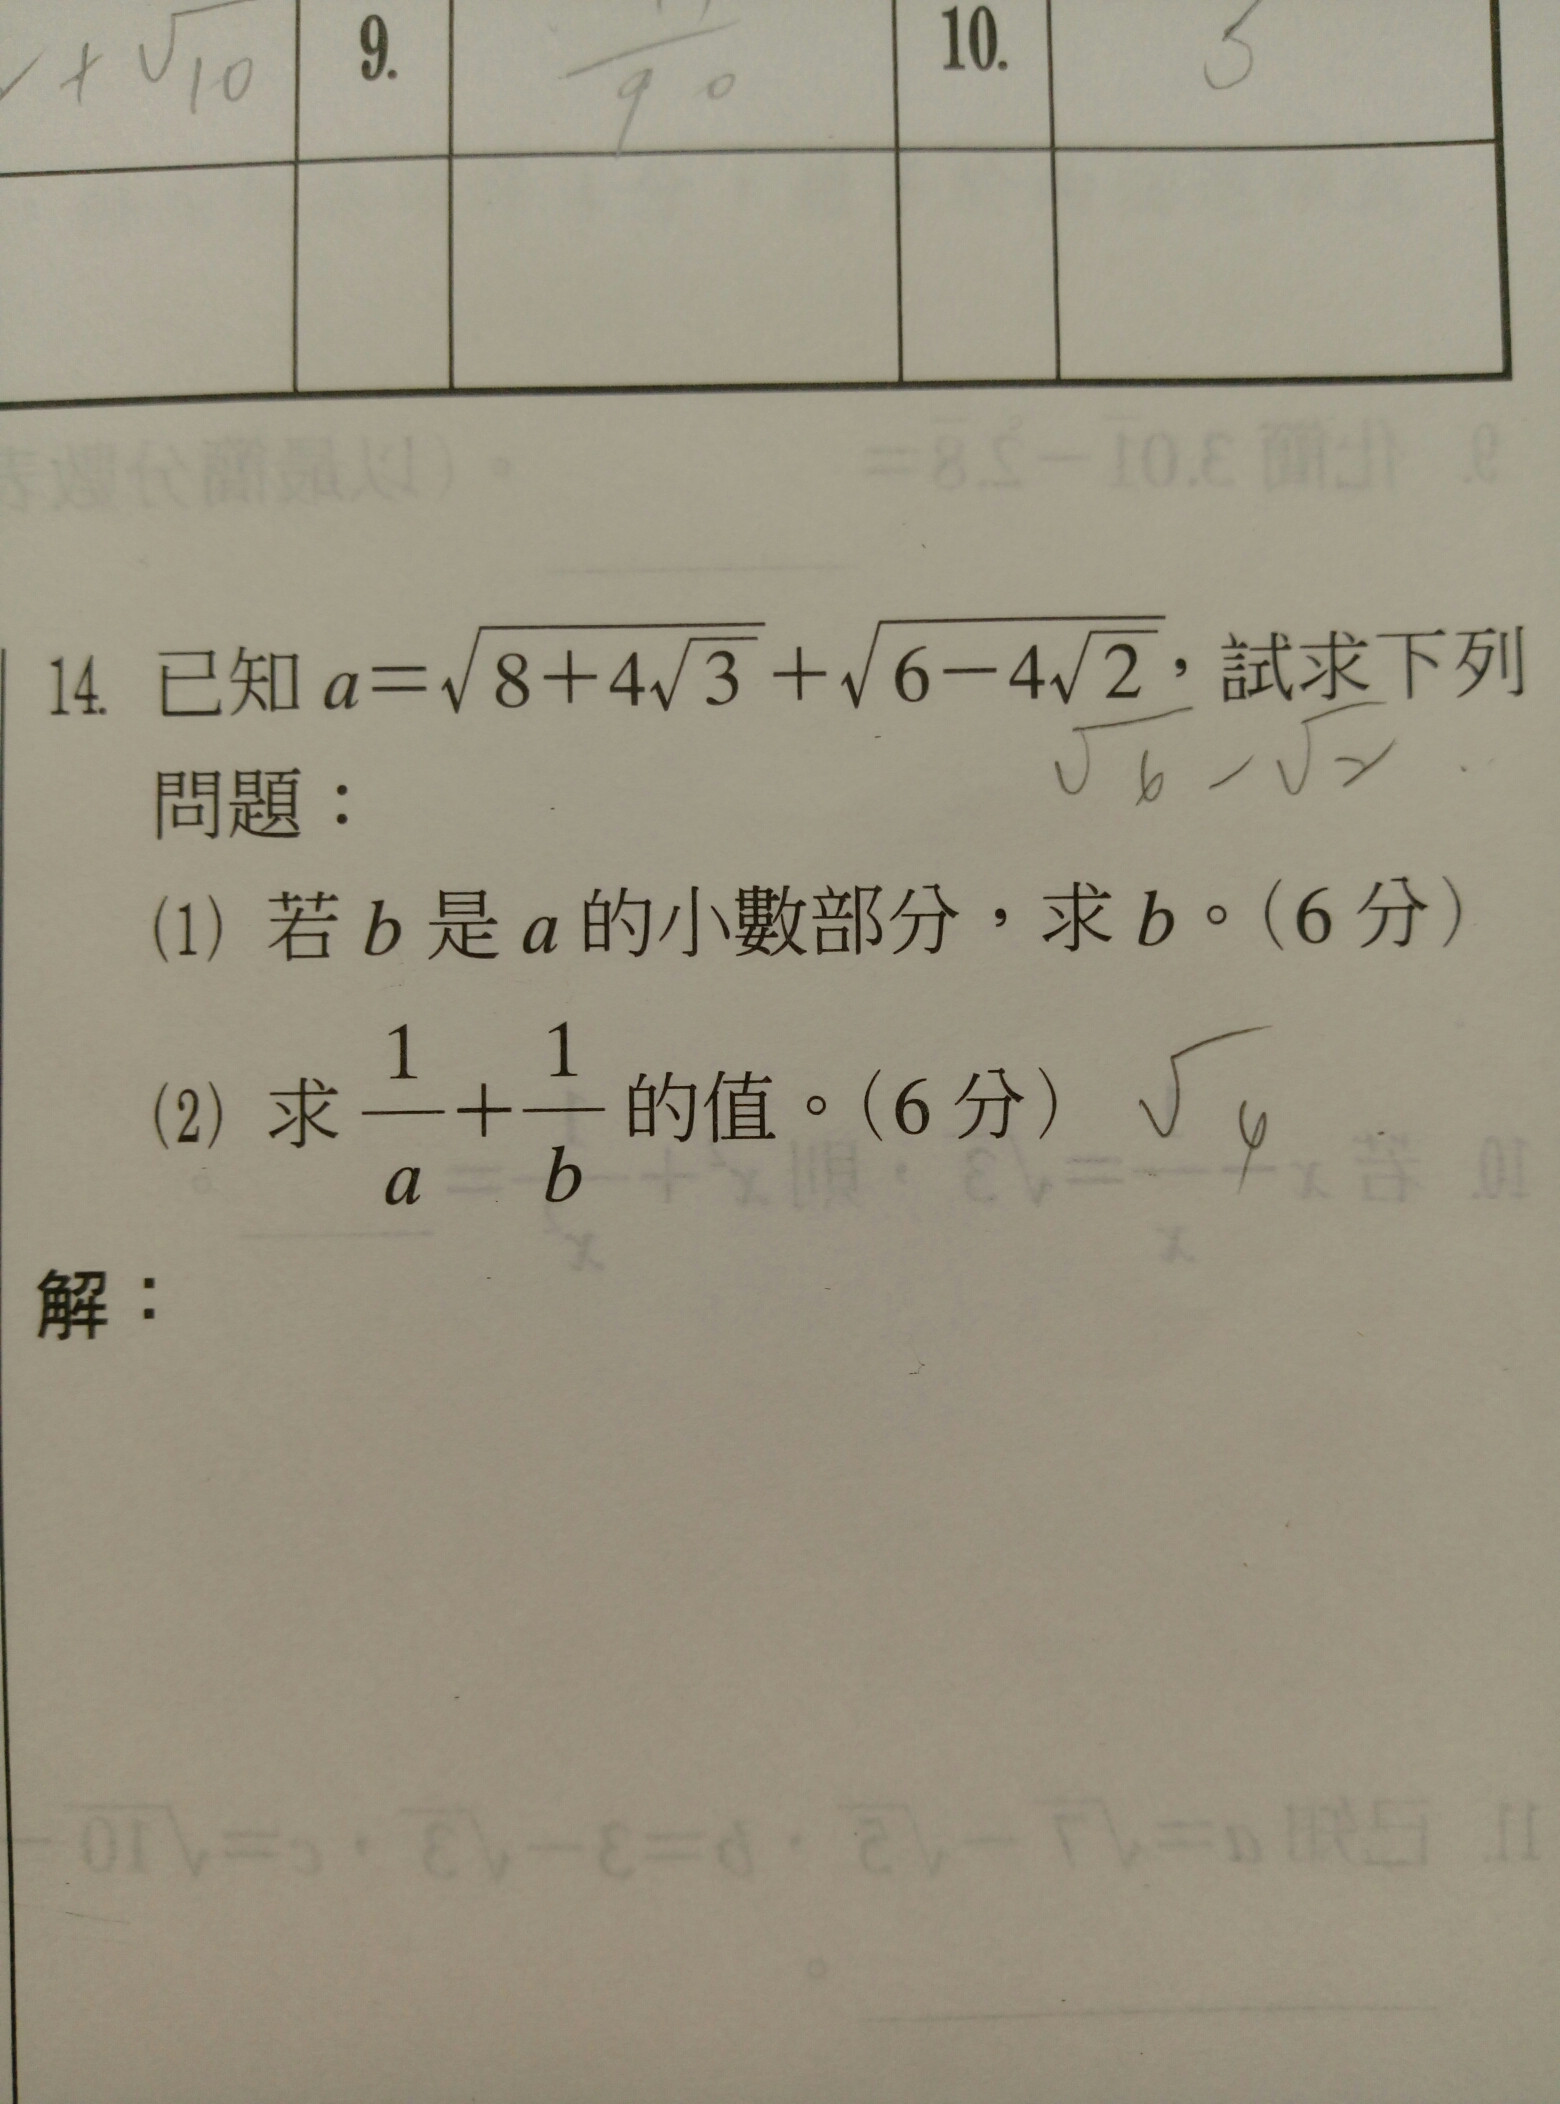 + √10 9. 90 10. 5
14. 已知 a=√(8+4√3)+√(6−4√2)，試求下列
√6 − √2
問題：
(1) 若 b 是 a 的小數部分，求 b。(6 分)
(2) 求 1/a + 1/b 的值。(6 分) √4
解：